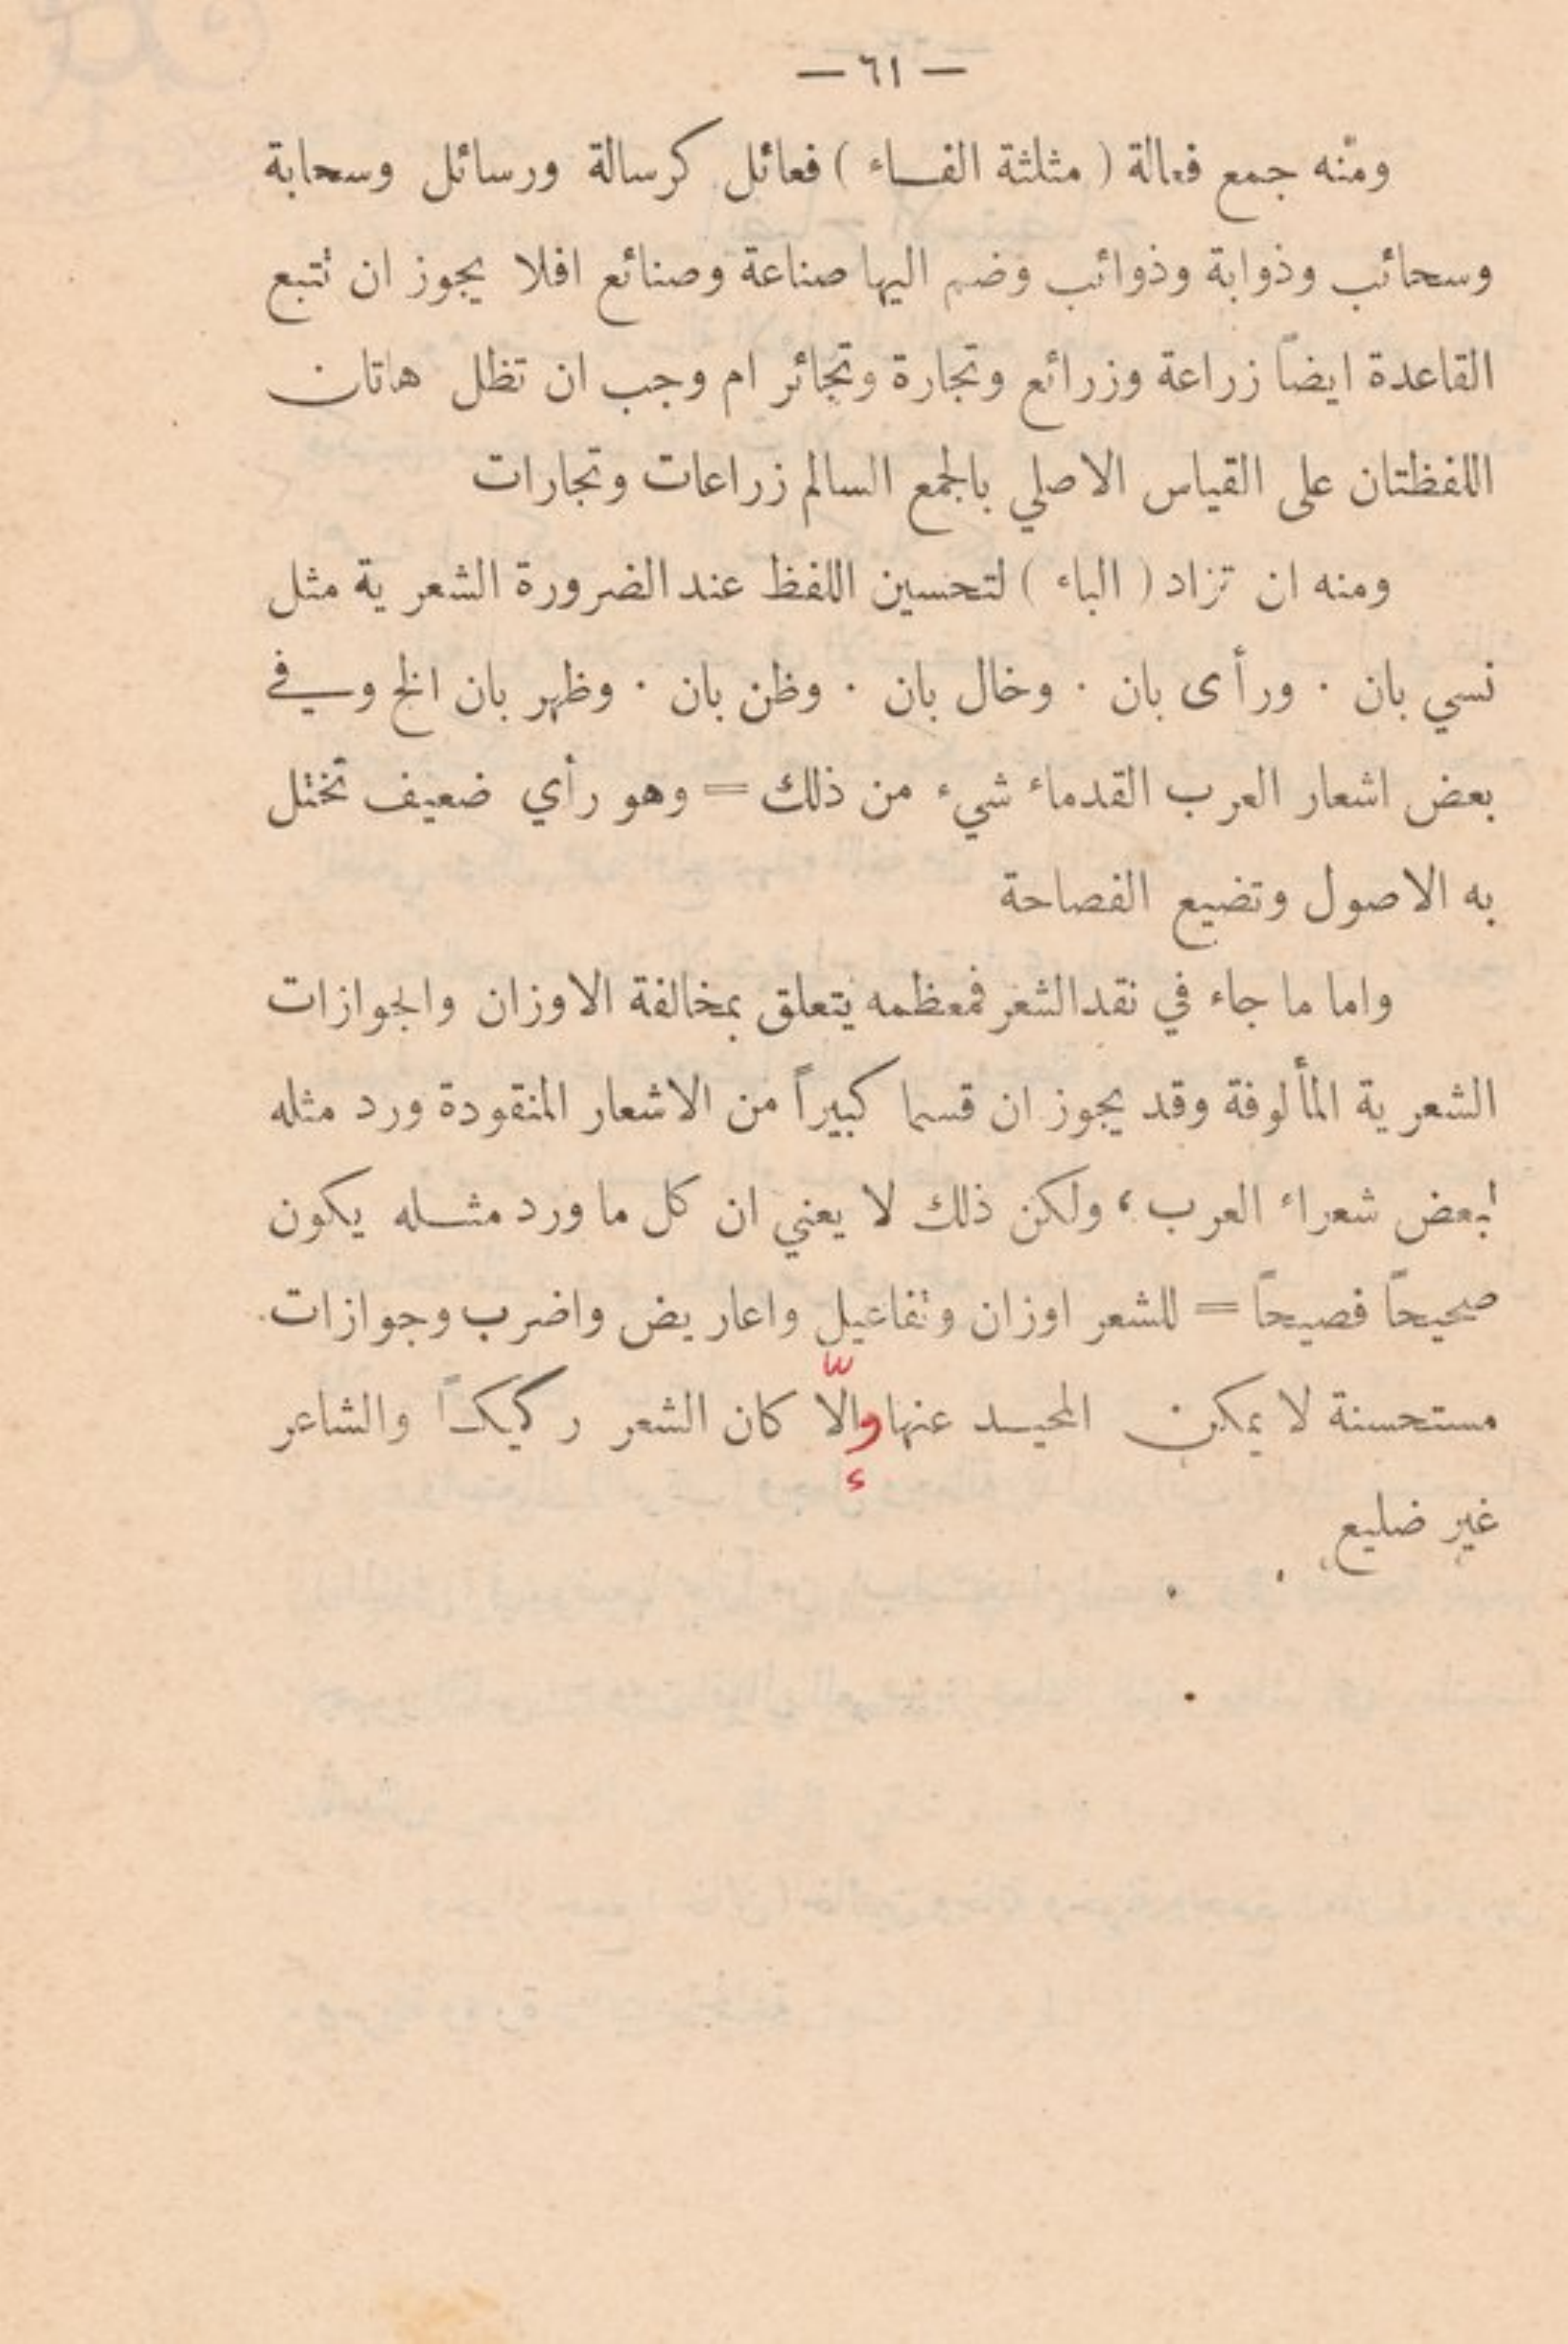 — ٦١ —
ومنه جمع فعالة ( مثلثة الفاء ) فعائل كرسالة ورسائل وسحابة
وسحائب وذوابة وذوائب وضم اليها صناعة وصنائع افلا يجوز ان تتبع
القاعدة ايضاً زراعة وزرائع وتجارة وتجائر ام وجب ان تظل هاتان
اللفظتان على القياس الاصلي بالجمع السالم زراعات وتجارات
ومنه ان تزاد ( الباء ) لتحسين اللفظ عند الضرورة الشعرية مثل
نسي بان . ورأى بان . وخال بان . وظن بان . وظهر بان الخ وفي
بعض اشعار العرب القدماء شيء من ذلك = وهو رأي ضعيف تختل
به الاصول وتضيع الفصاحة
واما ما جاء في نقد الشعر فمعظمه يتعلق بمخالفة الاوزان والجوازات
الشعرية المألوفة وقد يجوز ان قسما كبيراً من الاشعار المنقودة ورد مثله
لبعض شعراء العرب ، ولكن ذلك لا يعني ان كل ما ورد مثله يكون
صحيحاً فصيحاً = للشعر اوزان وتفاعيل واعاريض واضرب وجوازات
مستحسنة لا يمكن المحيد عنها وإلّا كان الشعر ركيكاً والشاعر
غير ضليع